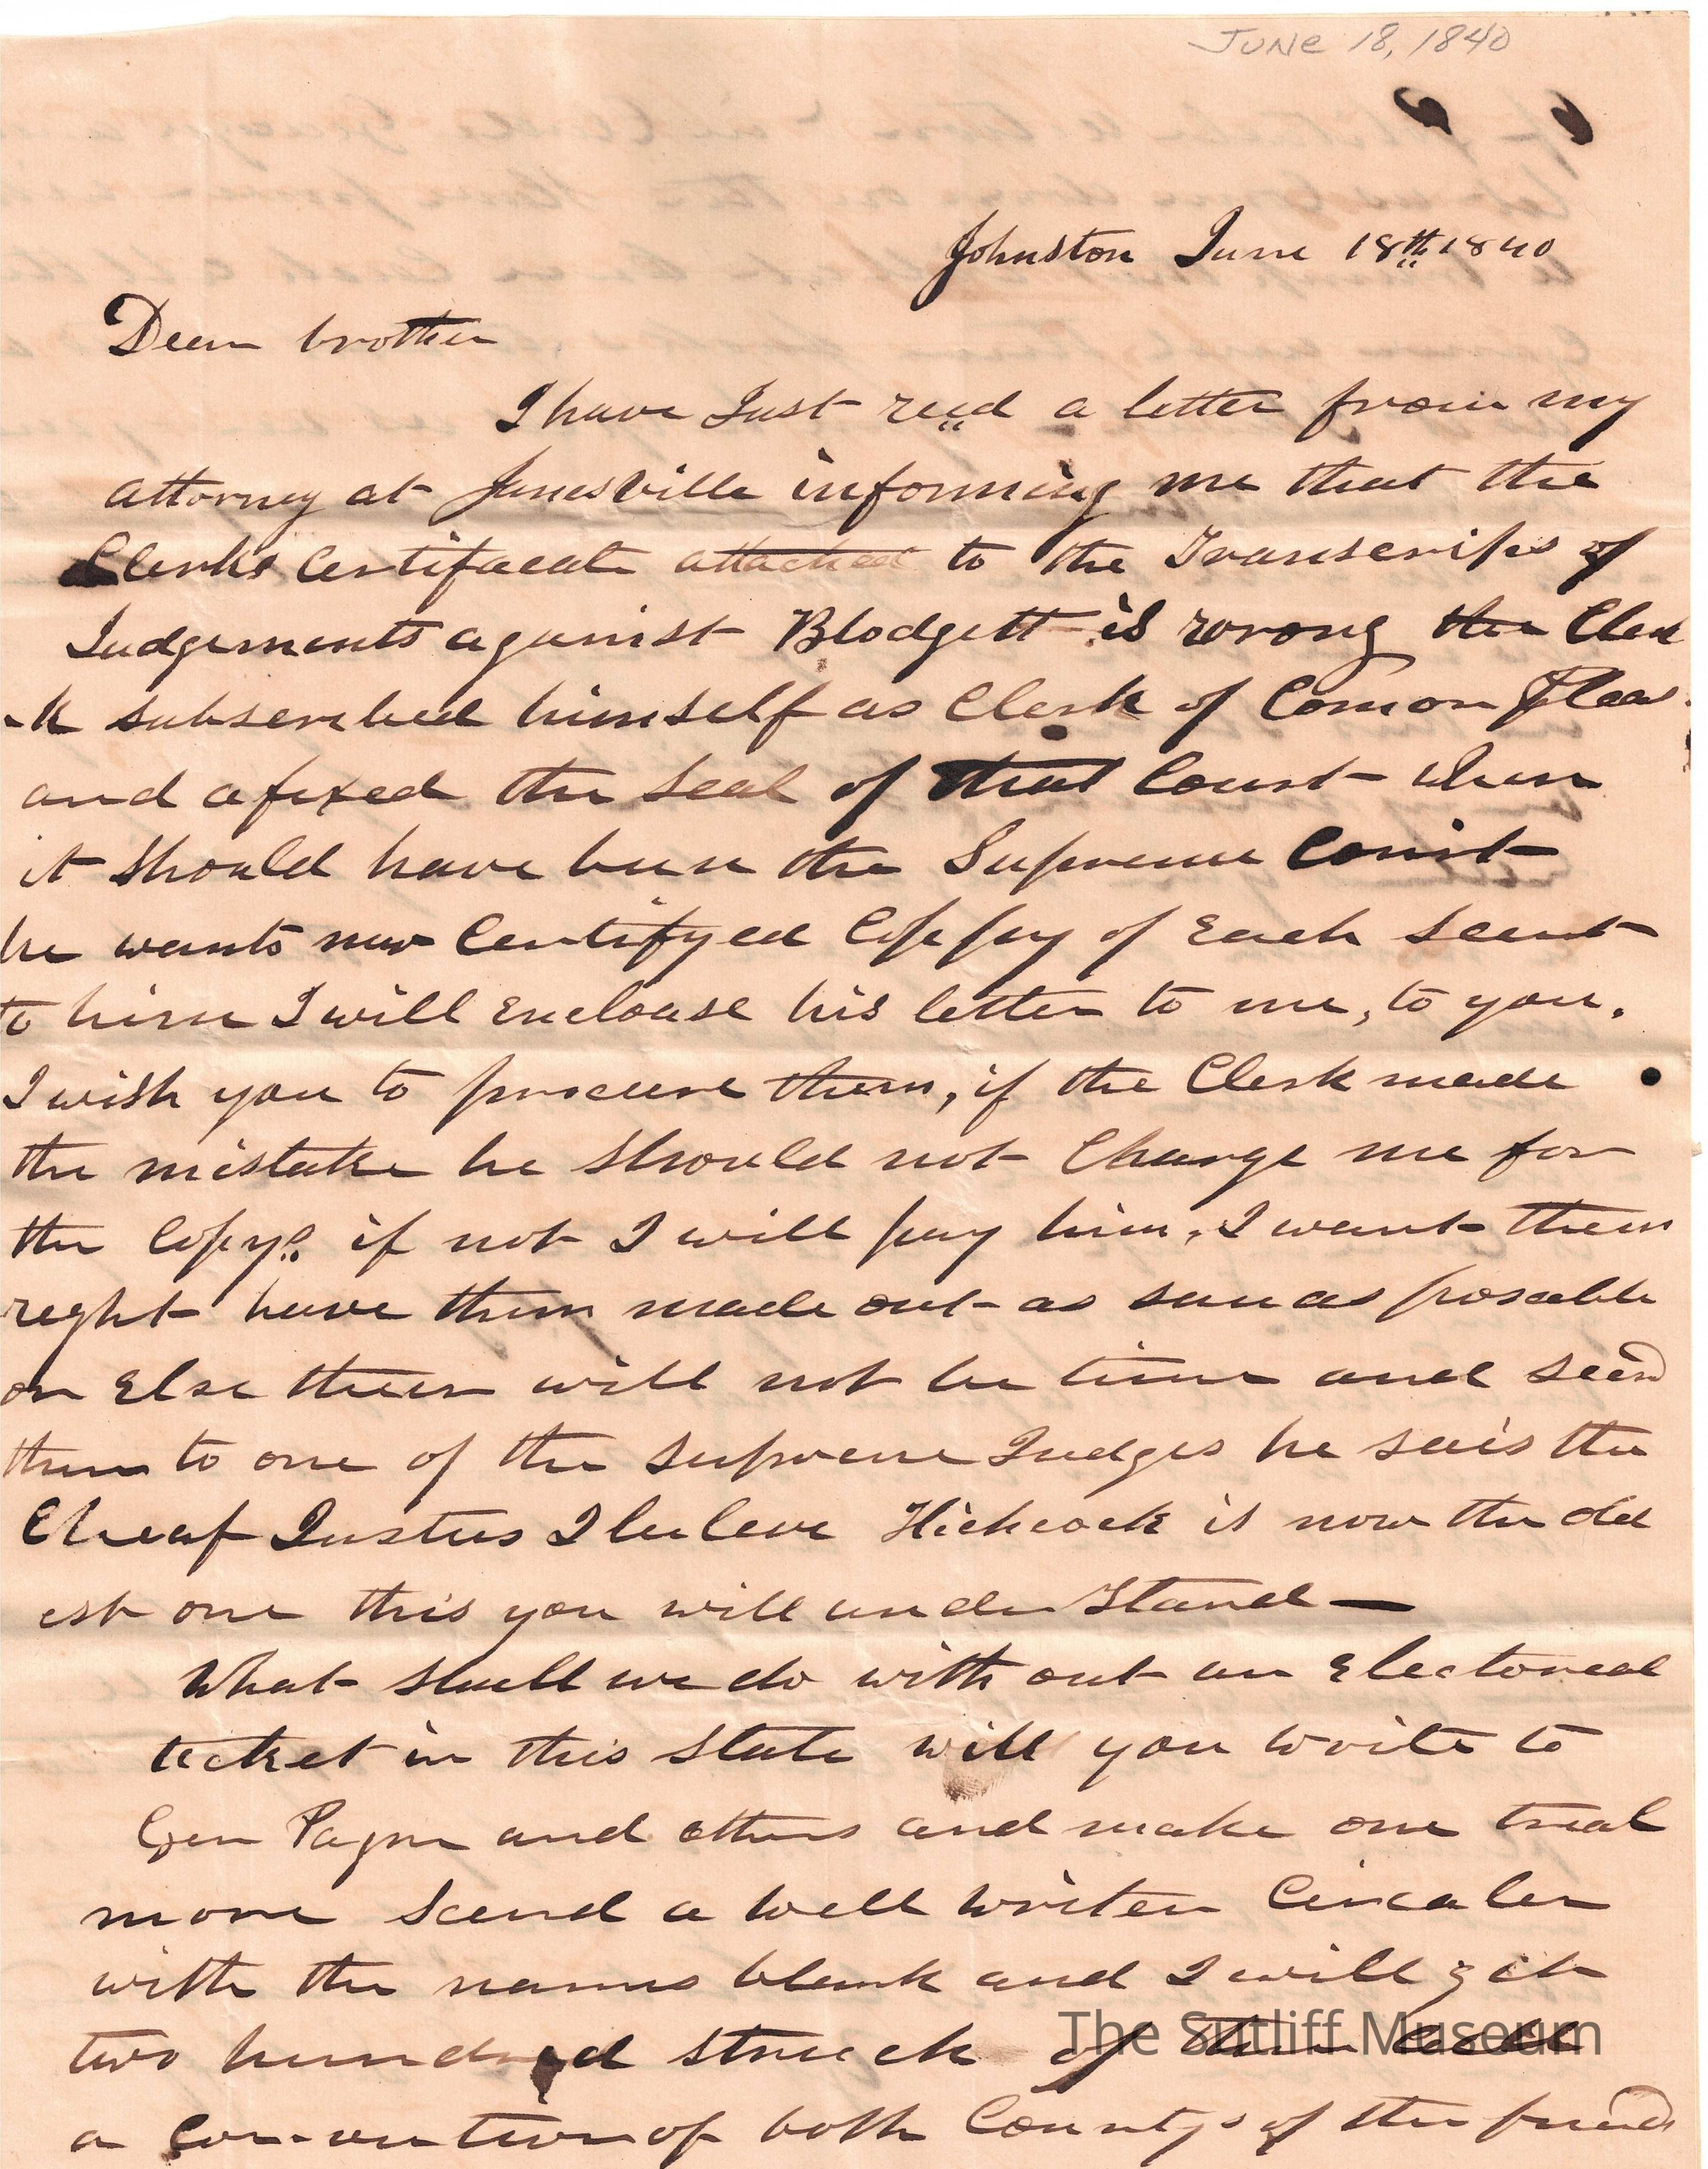 JUNE 18, 1840
Johnston June 18th 1840
Dear brother
I have Just recd a letter from my
attorney at Janesville informing me that the
Clerks Certifacate attached to the Transcrips of
Judgements against Blodgett is wrong the Cler
-k subscribed himself as Clerk of Comon Pleas
and afixed the seal of that Court when
it should have been the Supreme Court
he wants new Certifyed Coppy of Each scent
to him I will Enclouse his letter to me, to you.
I wish you to procure them, if the Clerk made
the mistake he should not Charge me for
the Copys. if not I will pay him. I want them
right have them made out as sun as posable
or Else their will not be time and send
them to one of the supreme Judges he sais the
Cheaf Justus I beleve Hichcock is now the old
est one this you will under stand —
What shall we do with out an Electoreal
ticket in this state will you write to
Gen Payne and others and make one trial
more scend a well writen Circaler
with the names blank and I will git
two hundred struck of then call
a Convention of both Countys of the friends
The Sutliff Museum